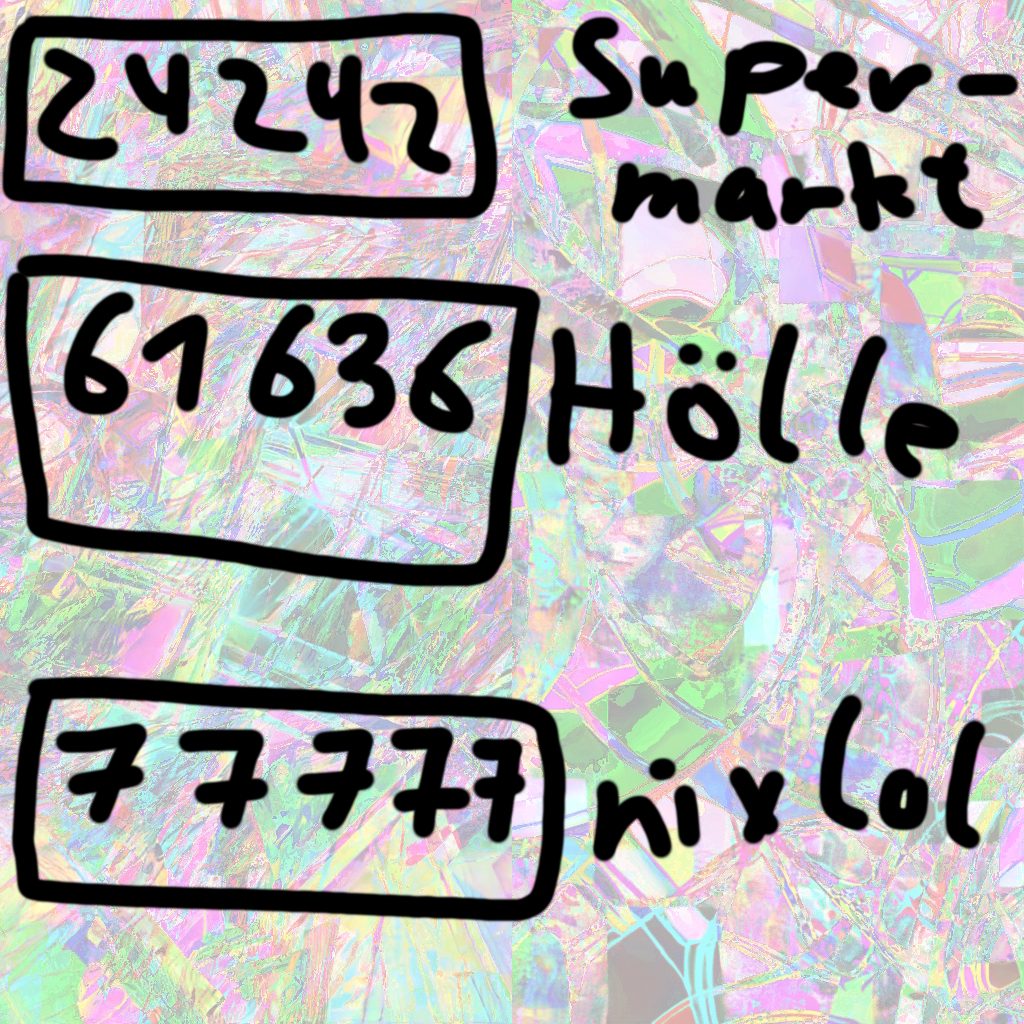 24242 Super-
markt
61636 Hölle
77777 nixlol